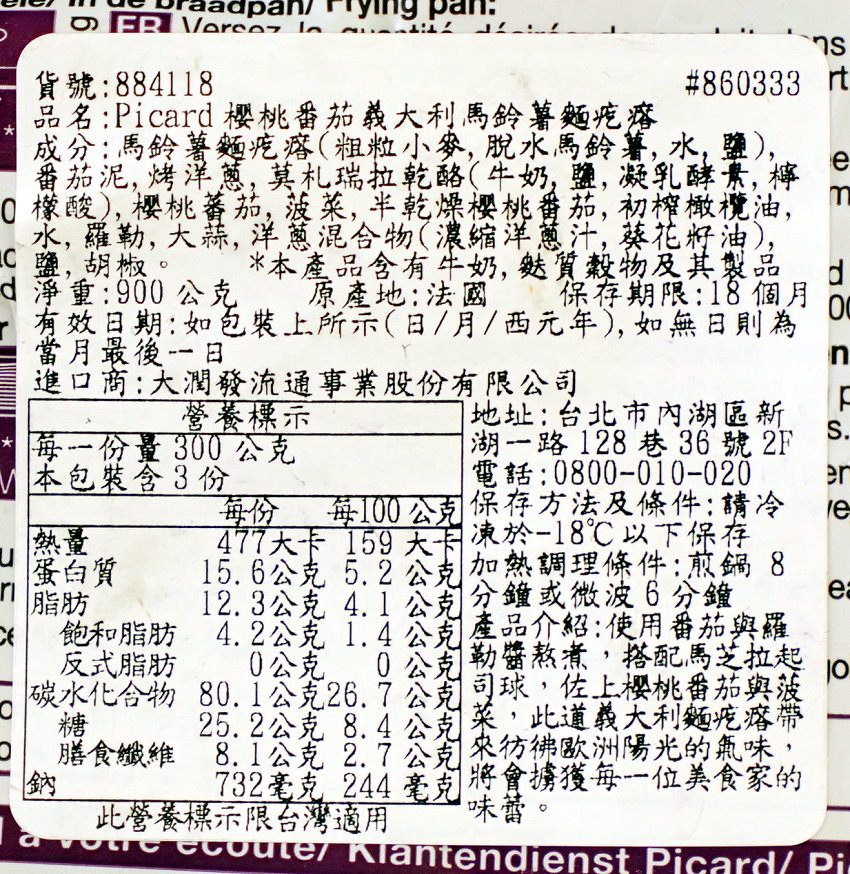 ele/ in de braadpan/ Frying pan:
FR Versez la quantité désirée de produit dans
貨號:884118 #860333
品名:Picard 櫻桃番茄義大利馬鈴薯麵疙瘩
成分:馬鈴薯麵疙瘩(粗粒小麥,脫水馬鈴薯,水,鹽),
番茄泥,烤洋蔥,莫札瑞拉乾酪(牛奶,鹽,凝乳酵素,檸
檬酸),櫻桃蕃茄,菠菜,半乾燥櫻桃番茄,初榨橄欖油,
水,羅勒,大蒜,洋蔥混合物(濃縮洋蔥汁,葵花籽油),
鹽,胡椒。 *本產品含有牛奶,麩質穀物及其製品
淨重:900 公克 原產地:法國 保存期限:18 個月
有效日期:如包裝上所示(日/月/西元年),如無日則為
當月最後一日
進口商:大潤發流通事業股份有限公司
營養標示
每一份量 300 公克
本包裝含 3 份
每份 每100 公克
熱量 477大卡 159 大卡
蛋白質 15.6公克 5.2 公克
脂肪 12.3公克 4.1 公克
飽和脂肪 4.2公克 1.4 公克
反式脂肪 0公克 0 公克
碳水化合物 80.1公克 26.7 公克
糖 25.2公克 8.4 公克
膳食纖維 8.1公克 2.7 公克
鈉 732毫克 244 毫克
此營養標示限台灣適用
地址:台北市內湖區新
湖一路 128 巷 36 號 2F
電話:0800-010-020
保存方法及條件:請冷
凍於-18℃以下保存
加熱調理條件:煎鍋 8
分鐘或微波 6 分鐘
產品介紹:使用番茄與羅
勒醬熬煮，搭配馬芝拉起
司球，佐上櫻桃番茄與菠
菜，此道義大利麵疙瘩帶
來彷彿歐洲陽光的氣味，
將會擄獲每一位美食家的
味蕾。
à votre écoute/ Klantendienst Picard/ Pi